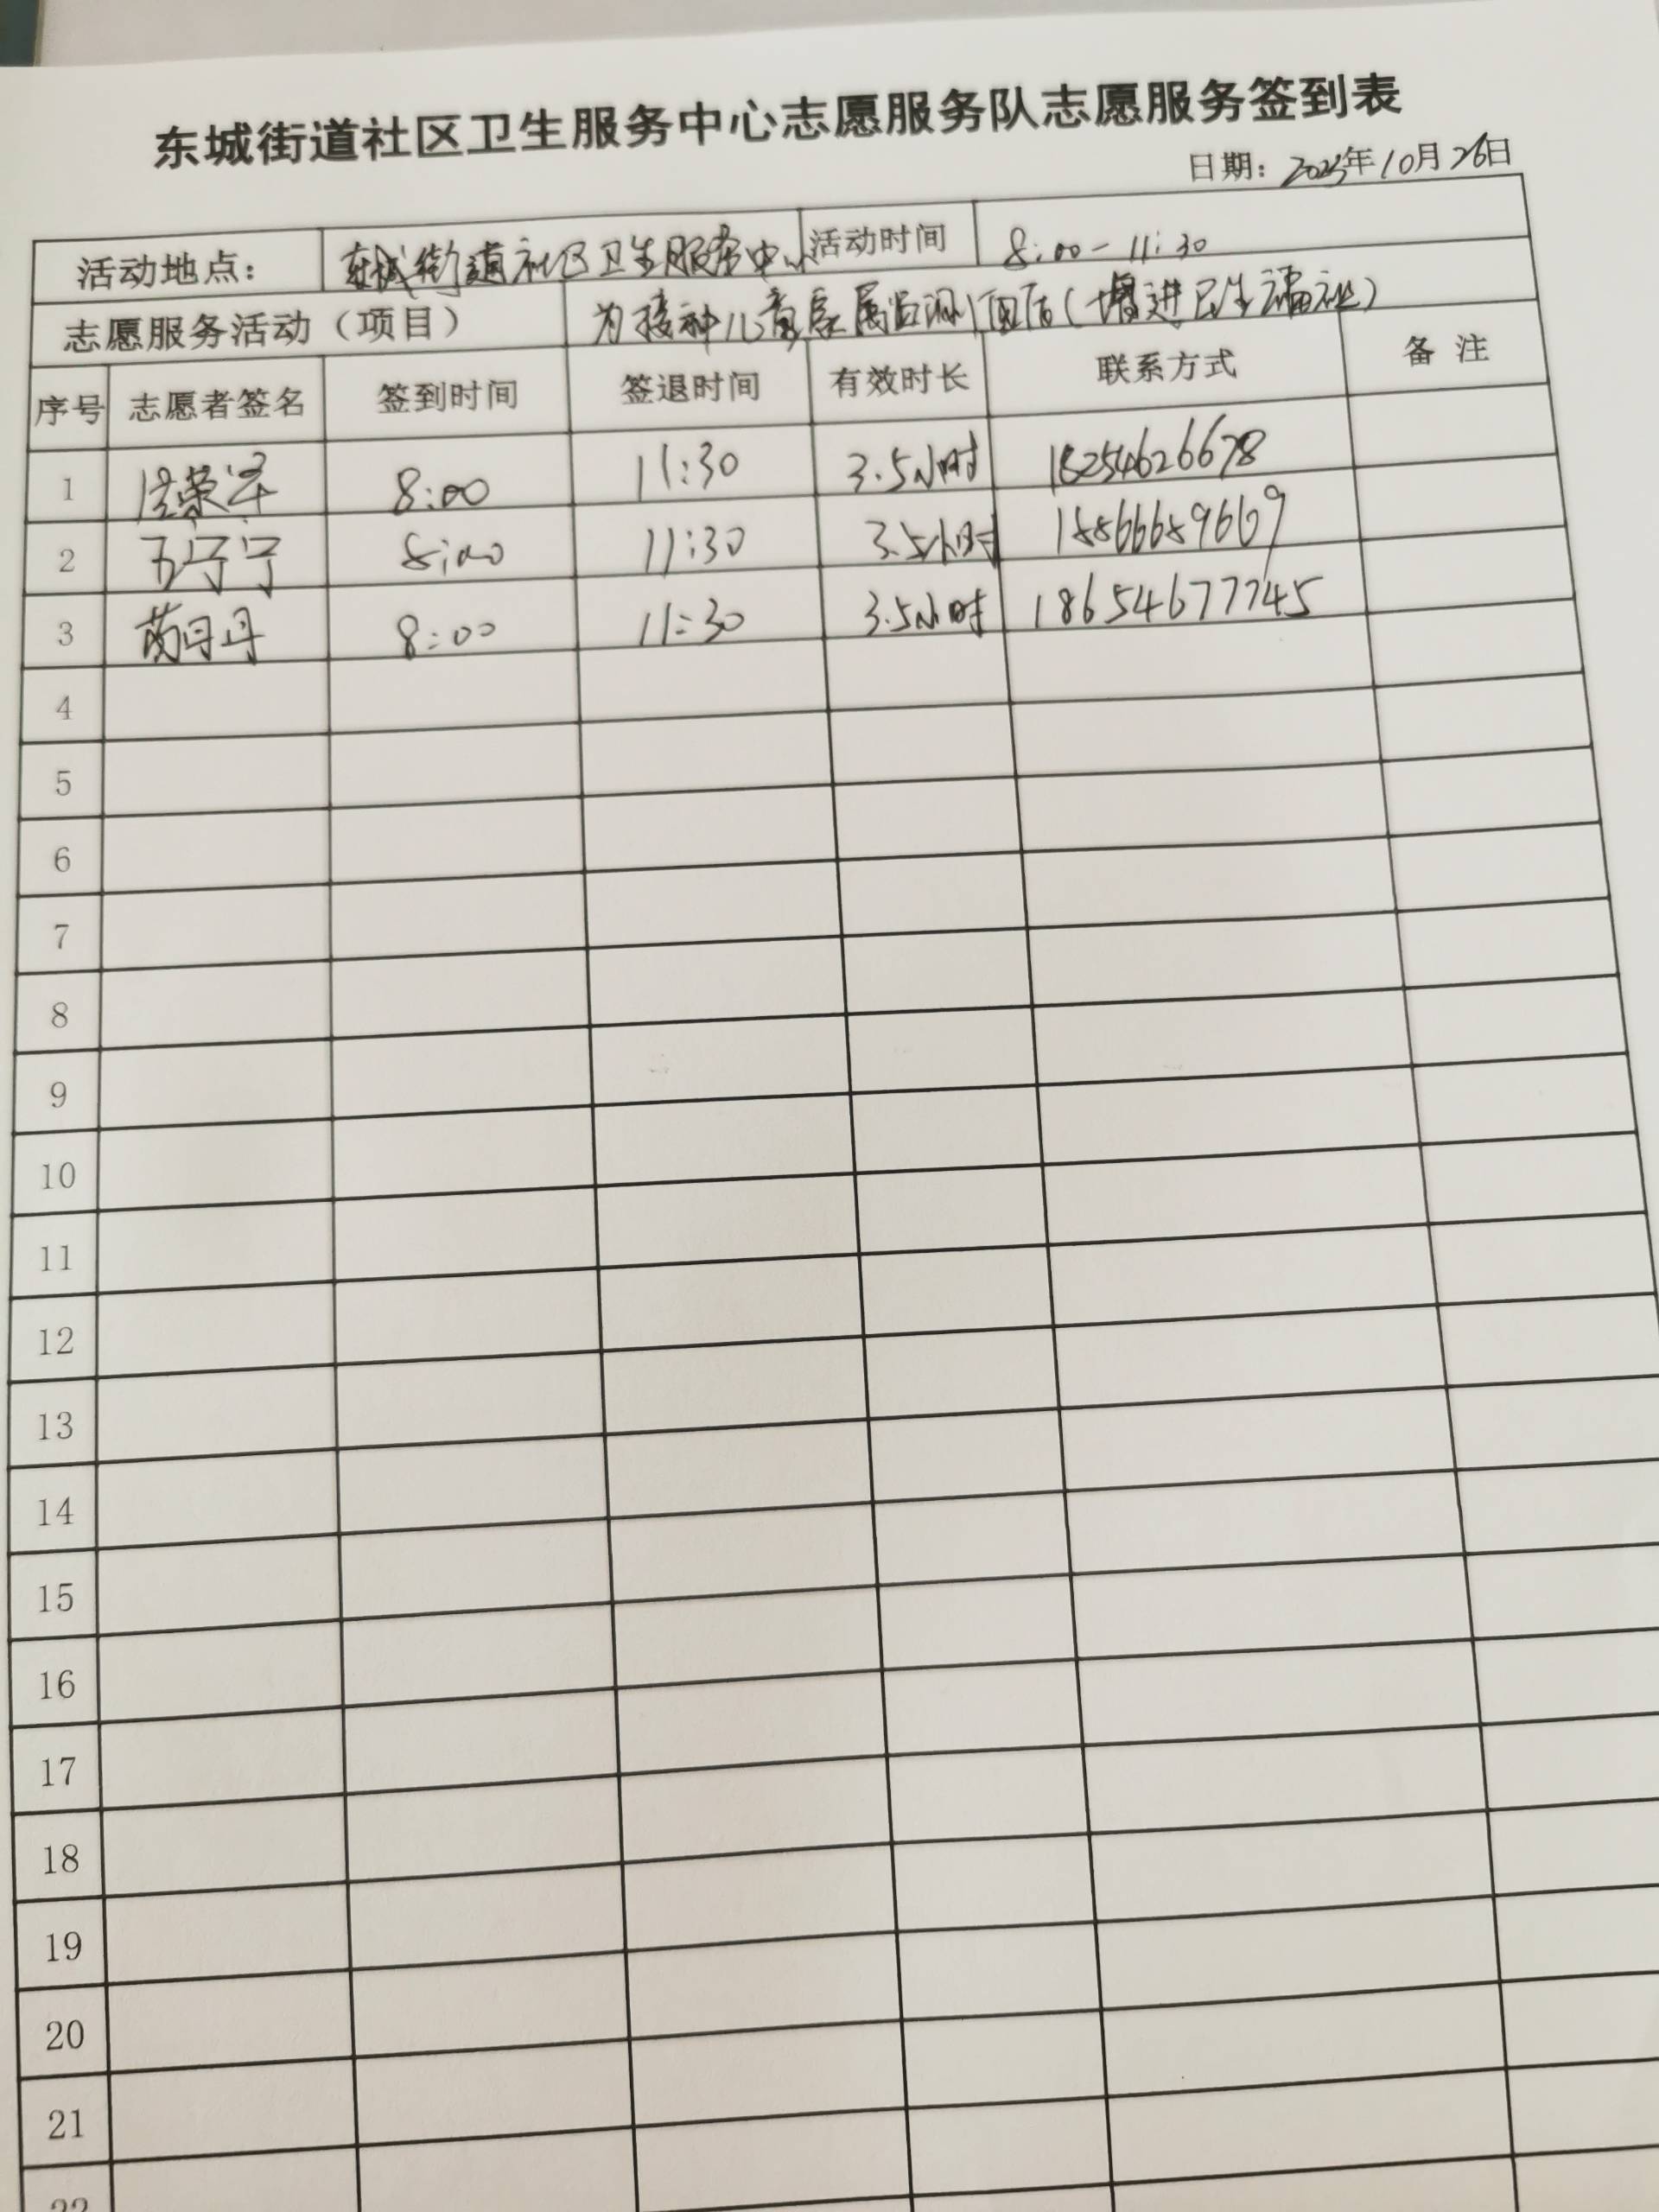 东城街道社区卫生服务中心志愿服务队志愿服务签到表
日期：2023年10月26日
活动地点： 东城街道社区卫生服务中心 活动时间 8:00-11:30
志愿服务活动（项目） 为接种儿童家属监测血压（增进民生福祉）
序号 志愿者签名 签到时间 签退时间 有效时长 联系方式 备注
1 荣军 8:00 11:30 3.5小时 18254626678
2 宁宁 8:00 11:30 3.5小时 18866689669
3 丹丹 8:00 11:30 3.5小时 18654677745
4
5
6
7
8
9
10
11
12
13
14
15
16
17
18
19
20
21
22